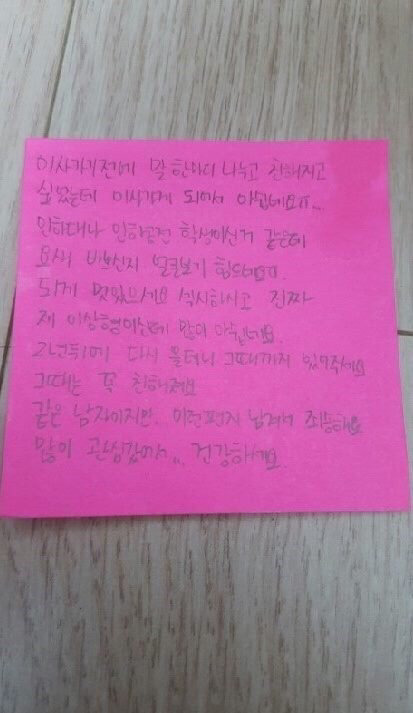 이사가기전에 말 한마디 나누고 친해지고
싶었는데 이사가게 되어서 아쉽네요ㅠ...
인하대나 인하공전 학생이신거 같은데
요새 바쁘신지 얼굴보기 힘드네요ㅠ.
되게 멋있으세요 섹시하시고 진짜
제 이상형이신데 많이 아쉽네요.
2년뒤에 다시 올테니 그때까지 있어주세요
그때는 꼭 친해져요
같은 남자이지만. 이런편지 남겨서 죄송해요
많이 관심갔어서... 건강하세요